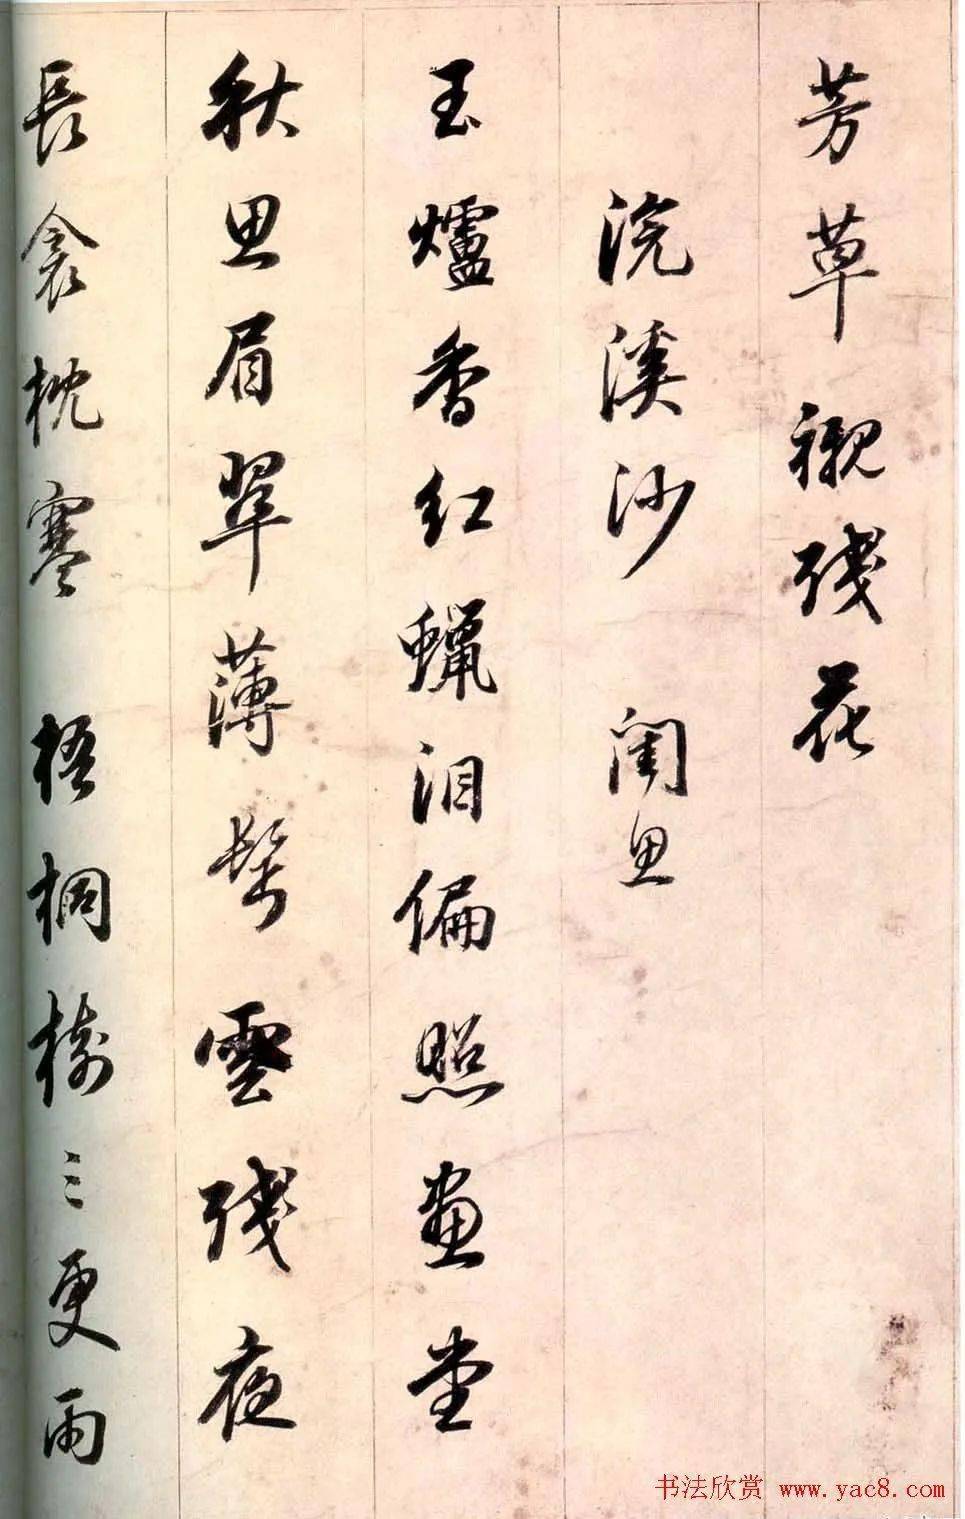 芳草襯殘花
浣溪沙 閨思
玉爐香紅蠟泪偏照畫堂
秋思眉翠薄鬢雲殘夜
長衾枕寒 梧桐樹三更雨
书法欣赏 www.yac8.com